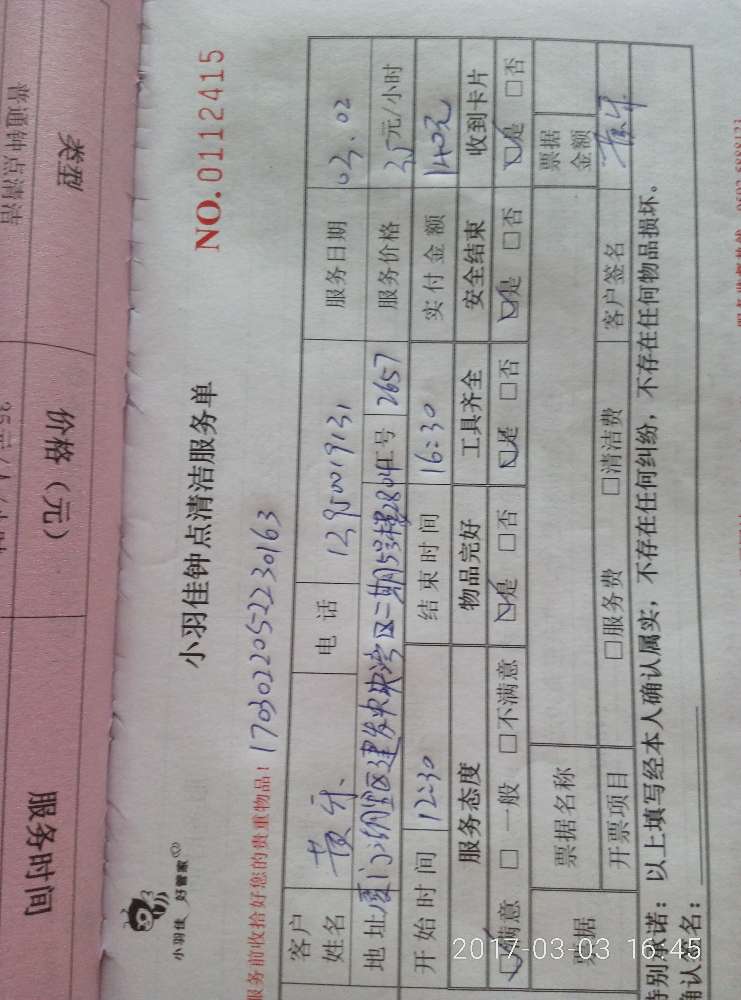 类型 价格（元） 服务时间
普通钟点清洁
小羽佳 好管家
小羽佳钟点清洁服务单
NO.0112415
服务前收拾好您的贵重物品！
1703022052230163
客户姓名 黄 电话 服务日期 03.02
地址 厦门 区建发中央湾区二期 工号 2657 服务价格 35元/小时
开始时间 12:30 结束时间 16:30 实付金额 140元
服务态度 物品完好 工具齐全 安全结束 收到卡片
☑满意 □一般 □不满意 ☑是 □否 ☑是 □否 ☑是 □否 ☑是 □否
票据 票据名称 票据金额
开票项目 □服务费 □清洁费 客户签名
特别承诺：以上填写经本人确认属实，不存在任何纠纷，不存在任何物品损坏。
确认签名：
2017-03-03 16:45